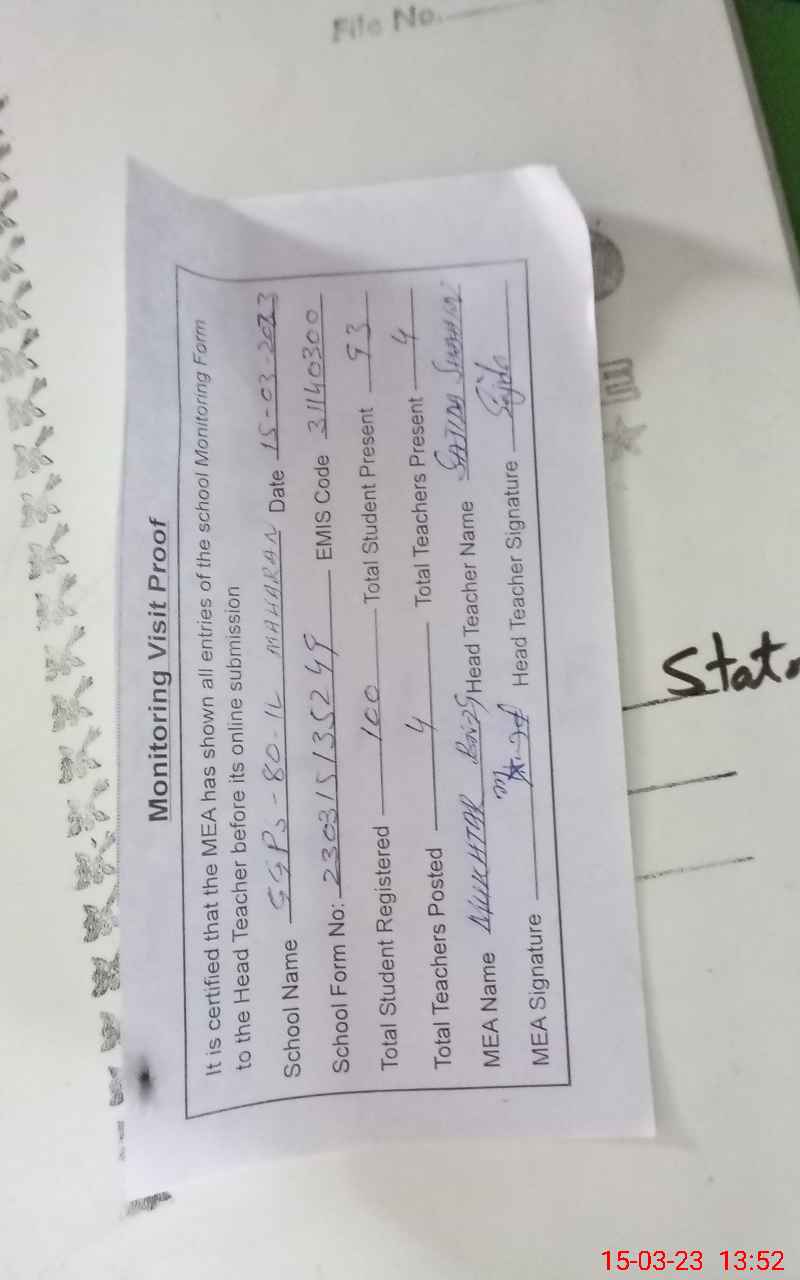 File No.
Monitoring Visit Proof
It is certified that the MEA has shown all entries of the school Monitoring Form
to the Head Teacher before its online submission
School Name GGPS-80-1L MAHARAN Date 15-03-2023
School Form No: 2303151135249 EMIS Code 31140300
Total Student Registered 100 Total Student Present 93
Total Teachers Posted 4 Total Teachers Present 4
MEA Name MUKHTAR Head Teacher Name SAJIDA
MEA Signature Head Teacher Signature Sajida
Stat
15-03-23 13:52